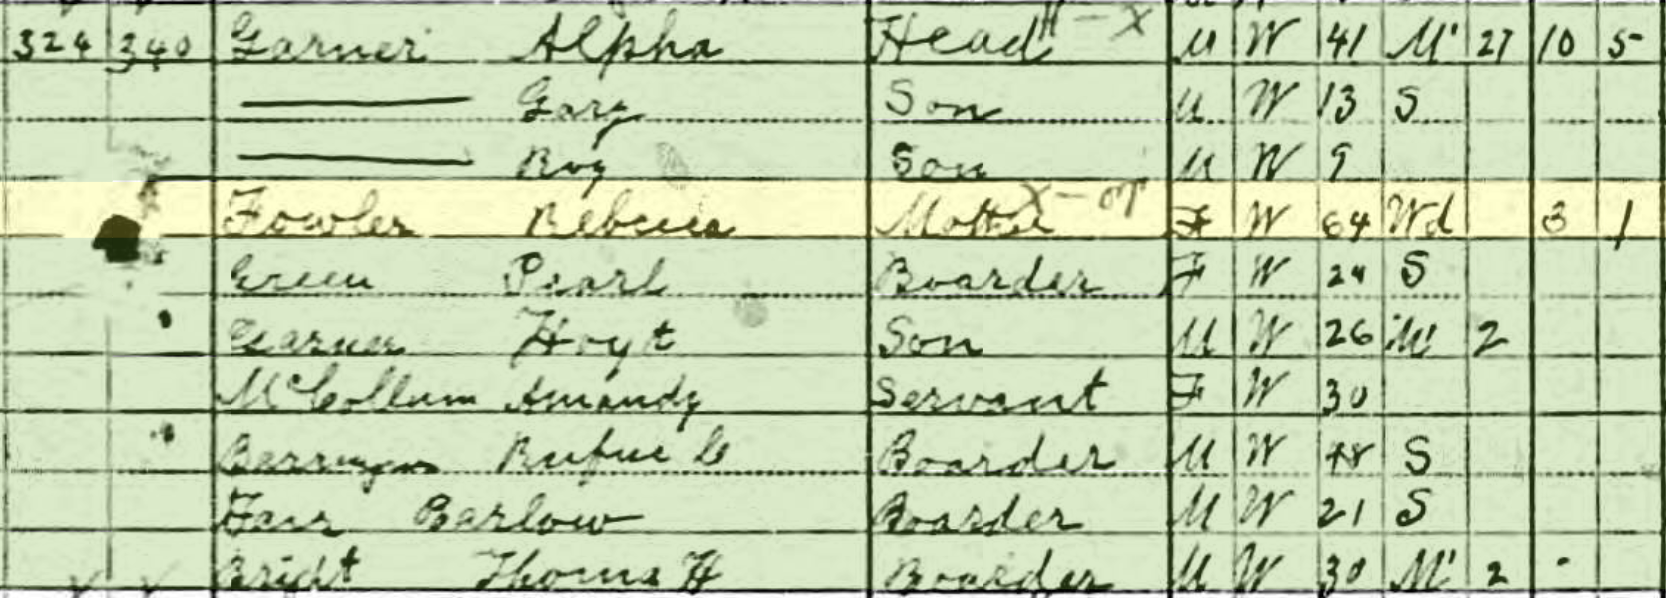 324 340 Garner Alpha Head H - X M W 41 M1 27 10 5
Gary Son M W 13 S
Roy Son M W 9
Fowler Rebecca Mother X - M W 64 Wd 3 1
Green Pearl Boarder F W 24 S
Garner Hoyt Son M W 26 M1 2
McCollum Amandy Servant F W 30
Rufus C Boarder M W S
Fair Barlow Boarder M W 21 S
Bright Thomas H Boarder M W 30 M1 2